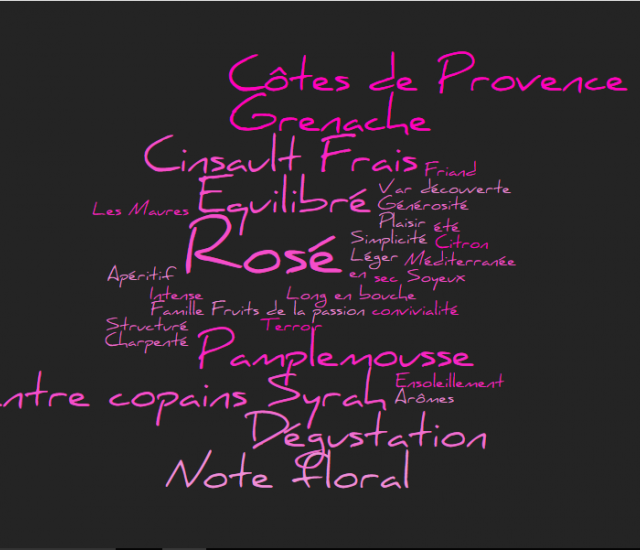 Côtes de Provence
Grenache
Cinsault Frais Friand
Les Maures Equilibré Var découverte
Générosité
Plaisir été
Rosé Simplicité Citron
Léger Méditerranée
Apéritif en sec Soyeux
Intense Long en bouche
Famille Fruits de la passion convivialité
Structuré Terroir
Charpenté Pamplemousse
ntre copains Syrah Ensoleillement
Arômes
Dégustation
Note floral